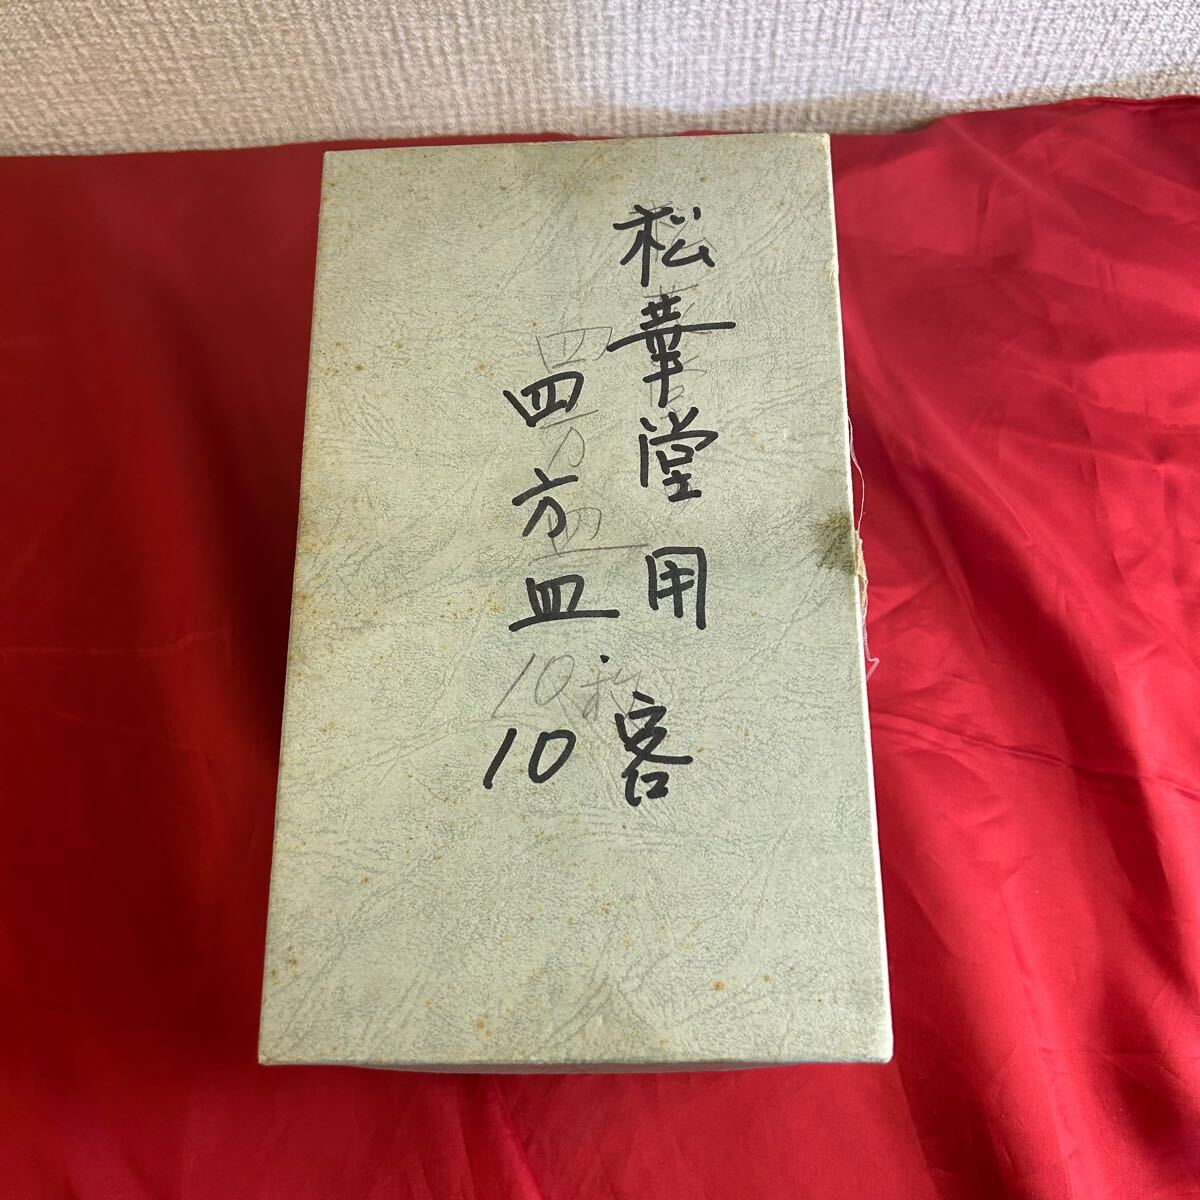 松華堂用
四方皿
10客
四方皿
10